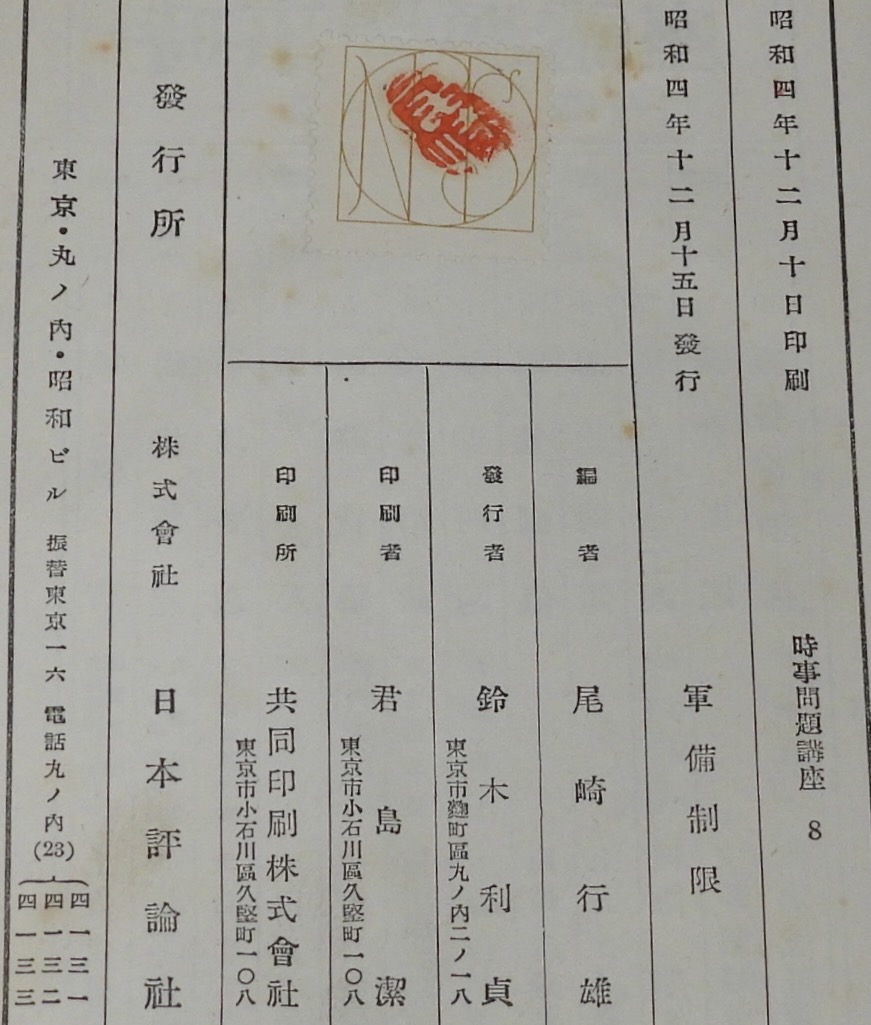 昭和四年十二月十日印刷
時事問題講座 8
昭和四年十二月十五日發行
軍備制限
編者
尾崎行雄
發行者
鈴木利貞
東京市麴町區丸ノ內二ノ一八
印刷者
君島潔
東京市小石川區久堅町一〇八
印刷所
共同印刷株式會社
東京市小石川區久堅町一〇八
發行所
株式會社
日本評論社
東京・丸ノ內・昭和ビル
振替東京一六
電話丸ノ內(23)
四一三一
四一三二
四一三三